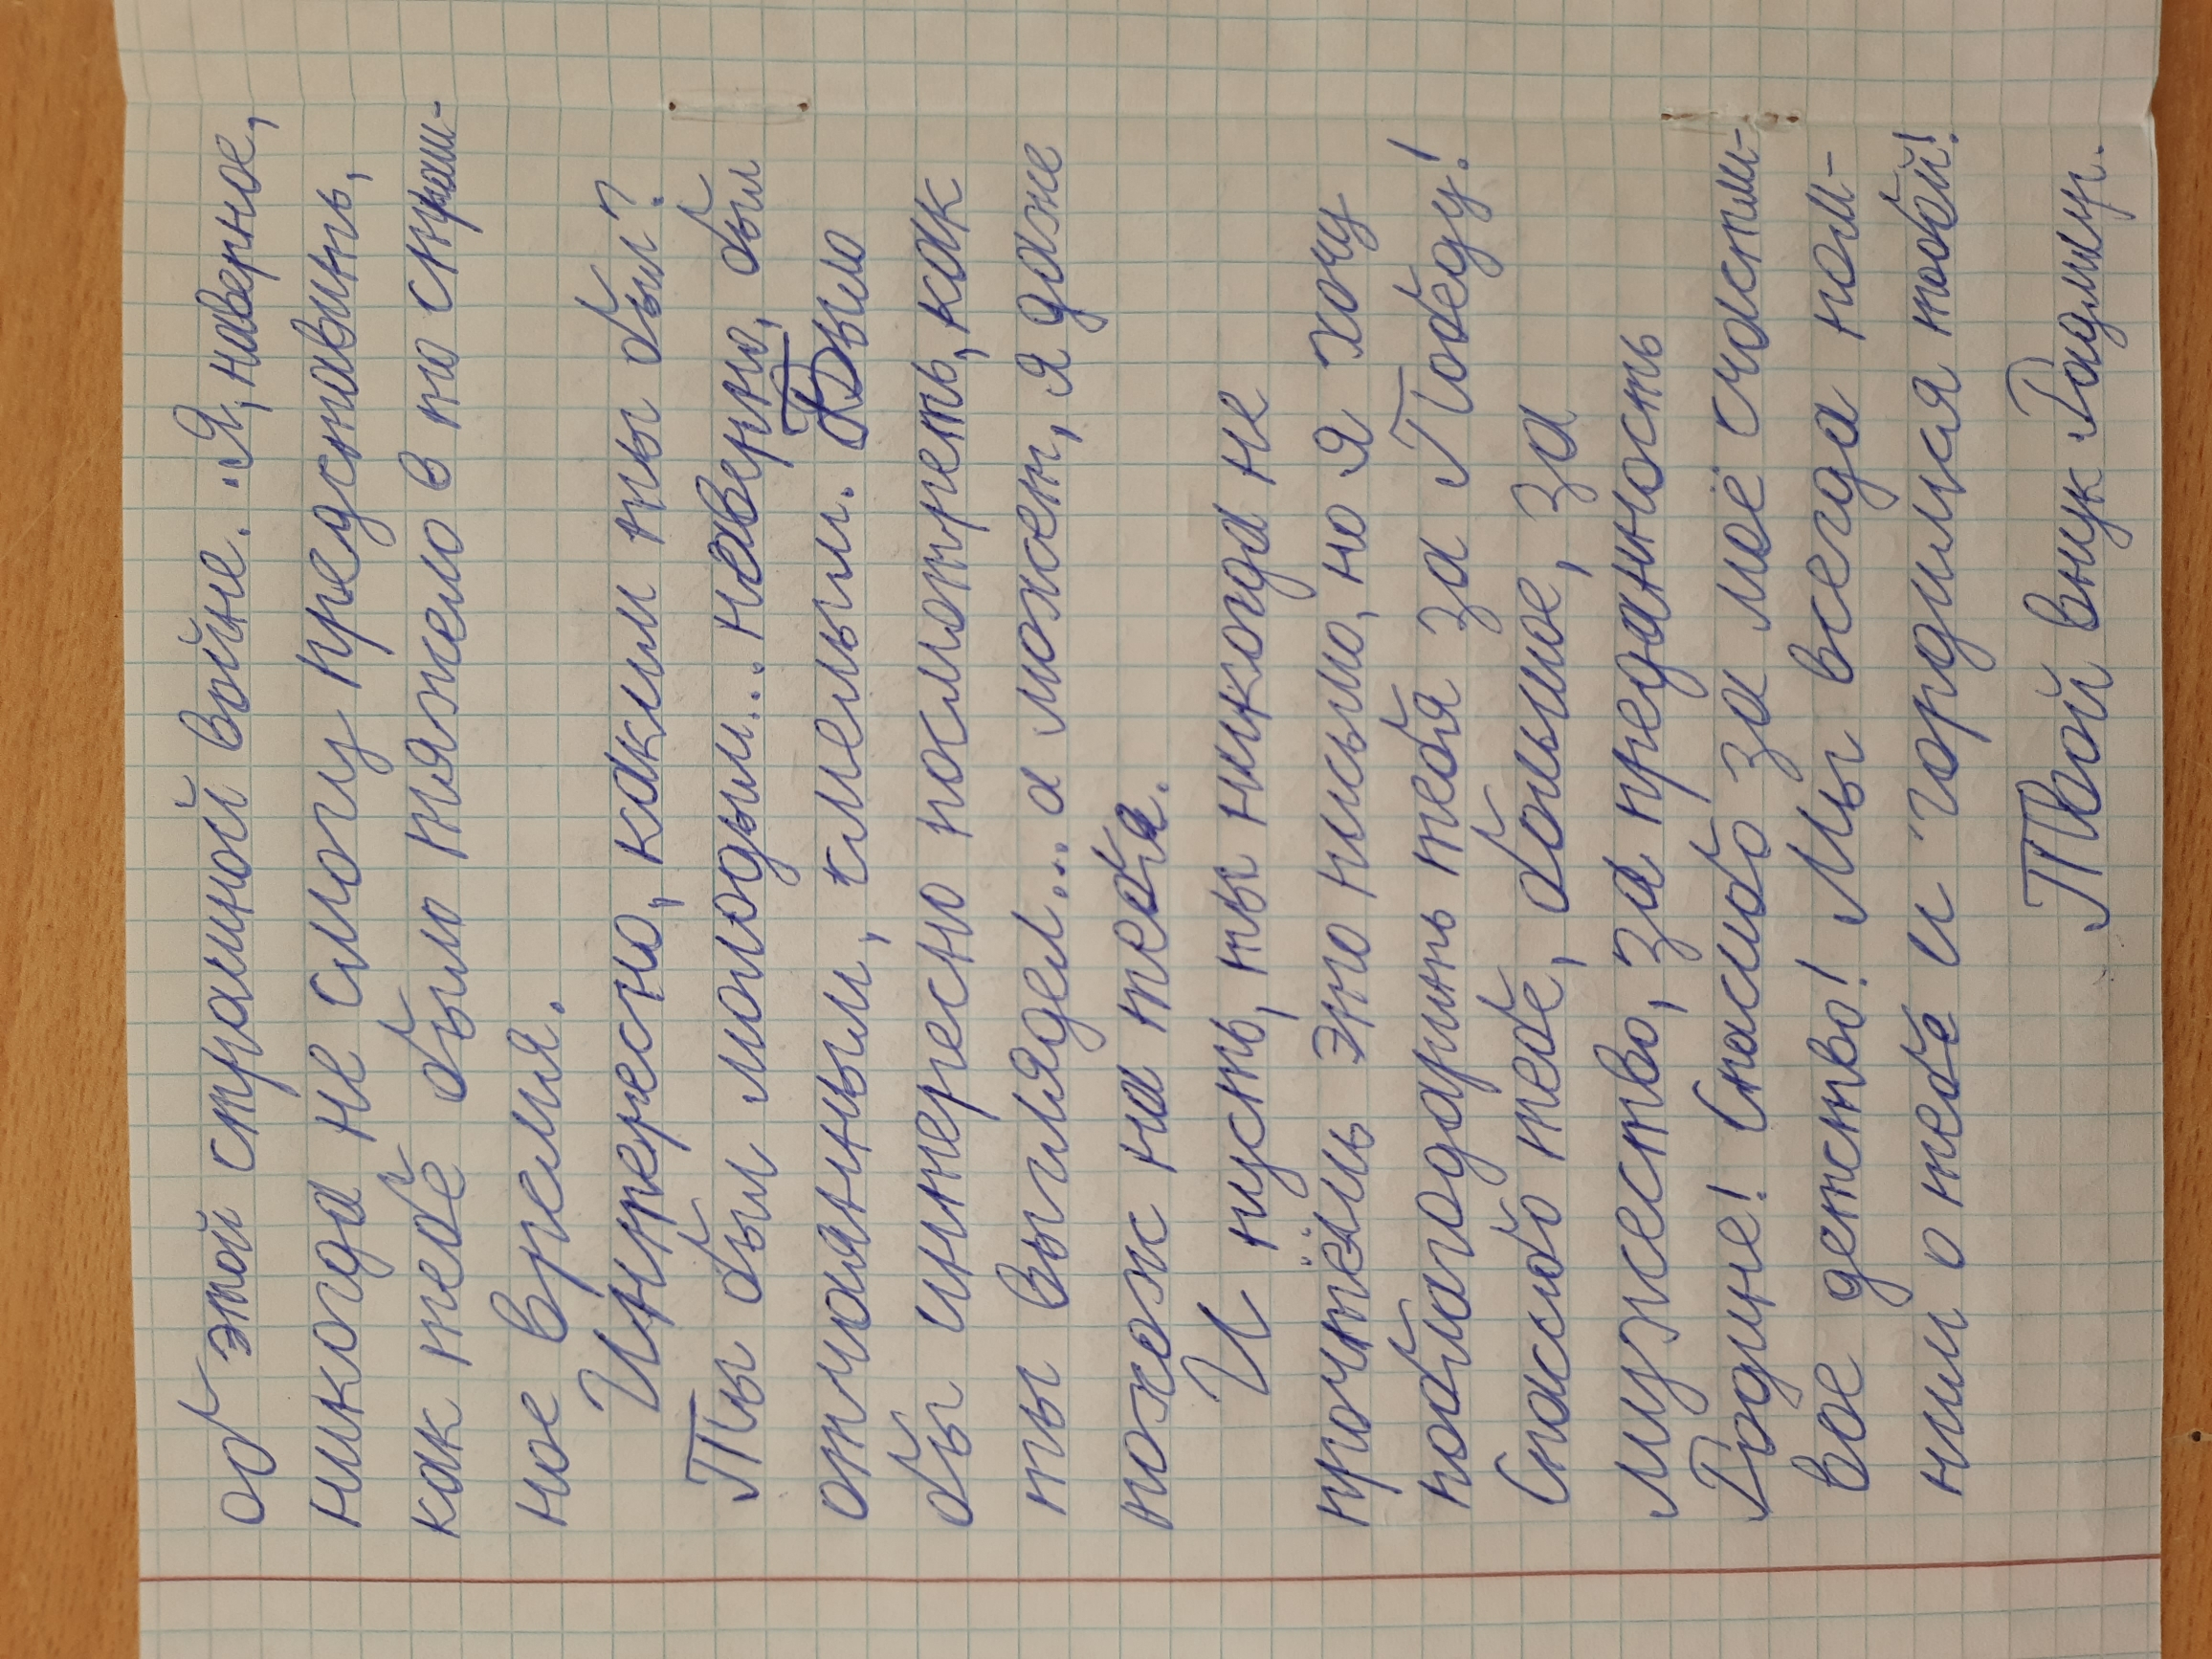 об этой страшной войне. Я, наверное,
никогда не смогу представить,
как тебе было тяжело в то страш-
ное время.
Интересно, каким ты был?
Ты был молодым... наверно, был
отчаянным, смелым. Было
бы интересно посмотреть, как
ты выглядел... а может, я даже
похож на тебя.
И пусть, ты никогда не
прочтёшь это письмо, но я хочу
поблагодарить тебя за Победу!
Спасибо тебе, большое, за
мужество, за преданность
Родине! Спасибо за моё счастли-
вое детство! Мы всегда пом-
ним о тебе и гордимся тобой!
Твой внук Радмир.